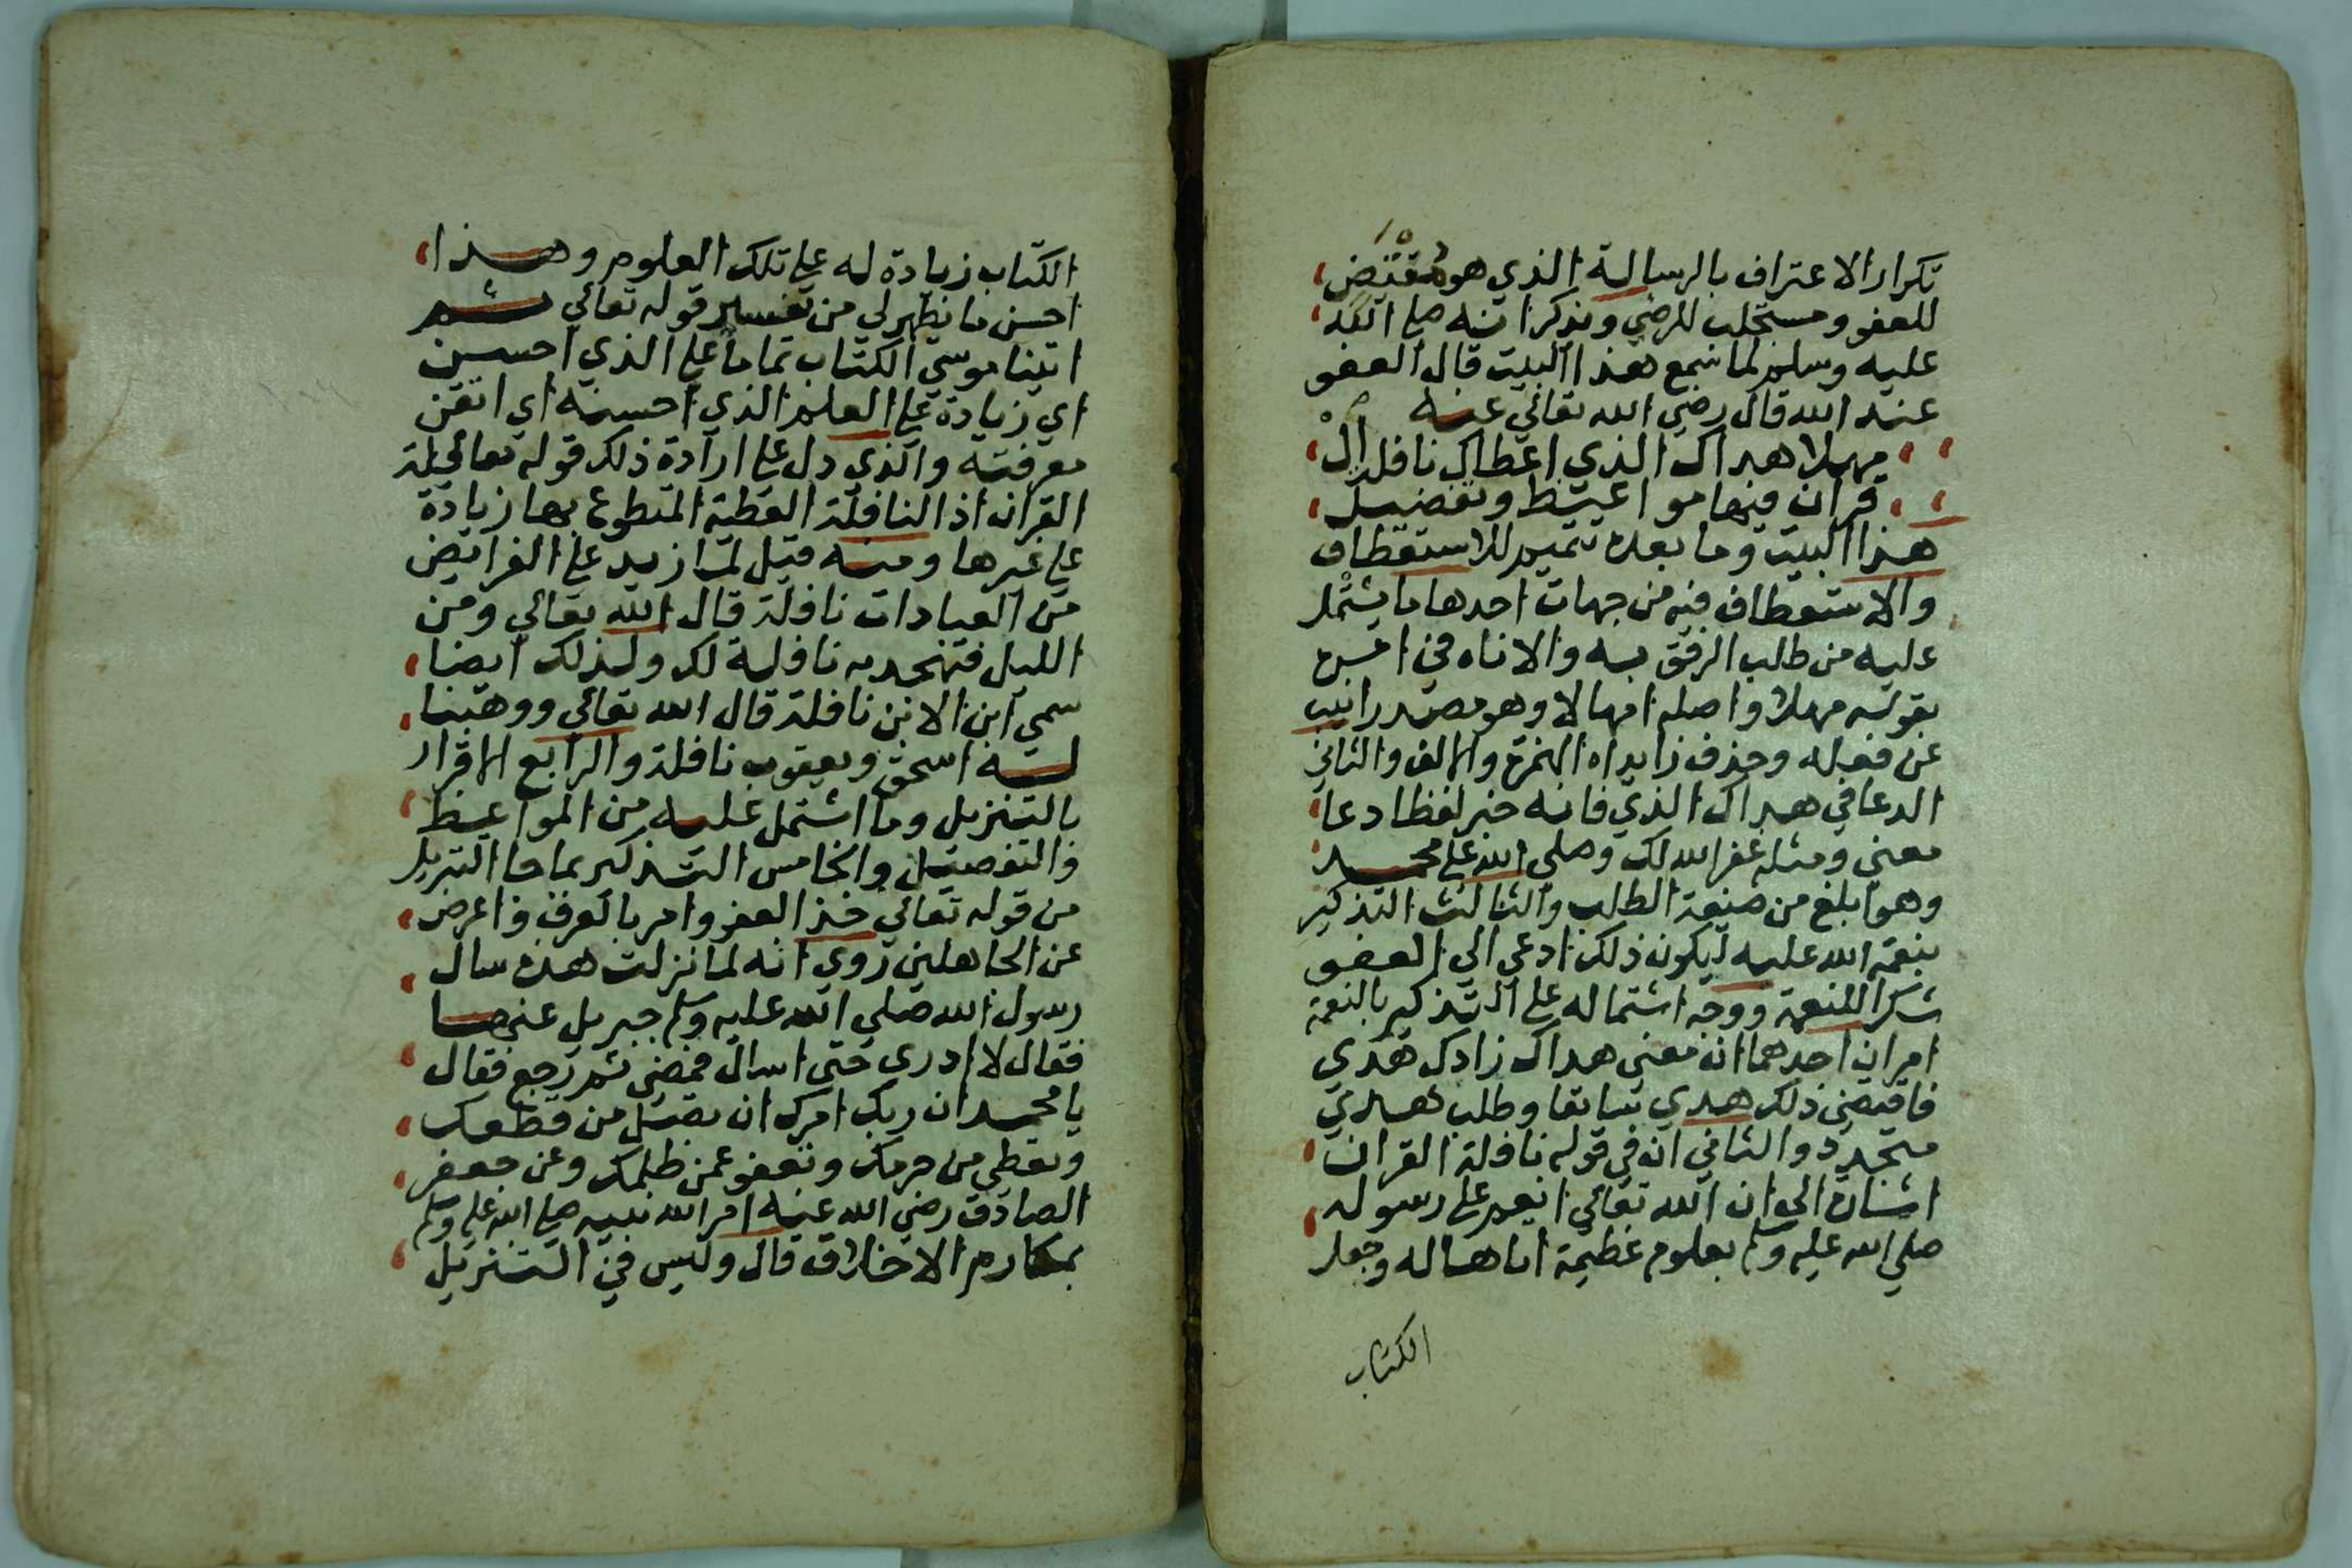 تكرار الاعتراف بالرسالة الذي هو مقتض
للعفو ومستجلب للرضي ويذكر انه صلى الله
عليه وسلم لما سمع هذا البيت قال العفو
عند الله قال رضي الله تعالي عنه
مهلا هداك الذي اعطاك نافلة ال
قران فيها مواعيظ وتفضيل
هذا البيت وما بعده تتميم للاستعطاف
والاستعطاف فيه من جهات احدها ما يشتمل
عليه من طلب الرفق به والاناه في امره
بقوله مهلا واصله امهالا وهو مصدر انيب
عن فعله وحذف زايداه الهمزة والالف والثاني
الدعا في هداك الذي فانه خبر لفظا دعا
معني ومثله غفر الله لك وصلي الله علي محمد
وهو ابلغ من صيغة الطلب والثالث التذكير
بنعمة الله عليه ليكون ذلك ادعي الي العفو
شكرا للنعمة ووجه اشتماله علي التذكير بالنعمة
امران احدهما ان معني هداك زادك هدي
فاقتضي ذلك هدي سابقا وطلب هدي
متجدد والثاني ان في قوله نافلة القران
اشارة الي ان الله تعالي انعم علي رسوله
صلي الله عليه وسلم بعلوم عظيمة اتاها له وجعل
الكتاب
الكتاب زيادة له علي تلك العلوم وهذا
احسن ما يظهر لي من تفسير قوله تعالي ثم
اتينا موسي الكتاب تماما علي الذي احسن
اي زيادة علي العلم الذي احسنه اي اتقن
معرفته والذي دل علي ارادة ذلك قوله تعالي نافلة
القران اذ النافلة العطية المتطوع بها زيادة
علي غيرها ومنه قيل لما زيد علي الفرايض
من العبادات نافلة قال الله تعالي ومن
الليل فتهجد به نافلة لك ولذلك ايضا
سمي ابن الابن نافلة قال الله تعالي ووهبنا
له اسحق ويعقوب نافلة والرابع الاقرار
بالتنزيل وما اشتمل عليه من المواعيظ
والتفصيل والخامس التذكير بما جا التنزيل
من قوله تعالي خذ العفو وامر بالعرف واعرض
عن الجاهلين روي انه لما نزلت هذه سال
رسول الله صلي الله عليه وسلم جبريل عنها
فقال لا ادري حتى اسال فمضي ثم رجع فقال
يا محمد ان ربك امرك ان تصل من قطعك
وتعطي من حرمك وتعفو عمن ظلمك وعن جعفر
الصادق رضي الله عنه امر الله نبيه صلى الله عليه وسلم
بمكارم الاخلاق قال وليس في التنزيل